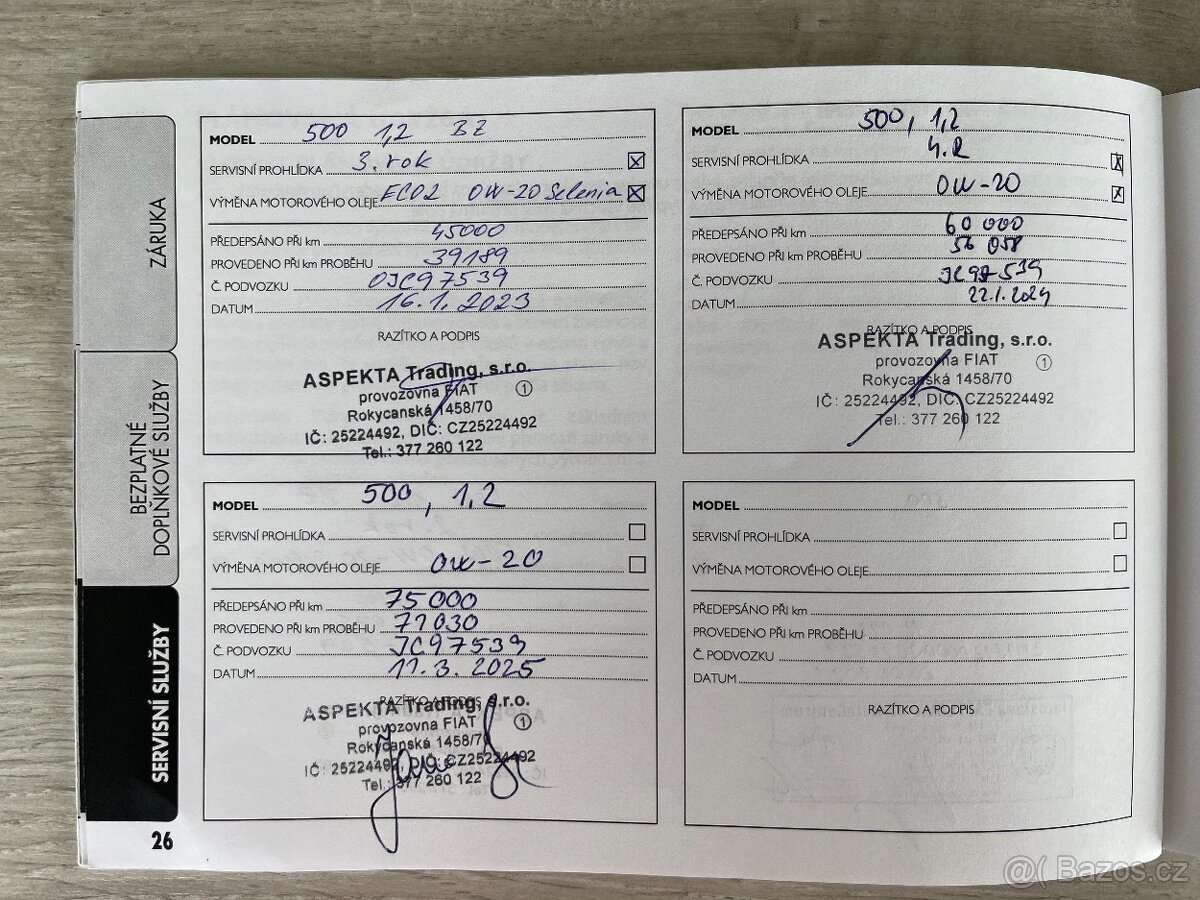 ZÁRUKA
BEZPLATNÉ
DOPLŇKOVÉ SLUŽBY
SERVISNÍ SLUŽBY
26
MODEL 500 1,2 BZ
SERVISNÍ PROHLÍDKA 3. rok
VÝMĚNA MOTOROVÉHO OLEJE ECO2 0W-20 Selenia
PŘEDEPSÁNO PŘI km 45000
PROVEDENO PŘI km PROBĚHU 39189
Č. PODVOZKU 0JC97539
DATUM 16.1.2023
RAZÍTKO A PODPIS
ASPEKTA Trading, s.r.o.
provozovna FIAT 1
Rokycanská 1458/70
IČ: 25224492, DIČ: CZ25224492
Tel.: 377 260 122
MODEL 500, 1,2
SERVISNÍ PROHLÍDKA 4.R
VÝMĚNA MOTOROVÉHO OLEJE 0W-20
PŘEDEPSÁNO PŘI km 60 000
PROVEDENO PŘI km PROBĚHU 56 058
Č. PODVOZKU JC97539
DATUM 22.1.2024
RAZÍTKO A PODPIS
ASPEKTA Trading, s.r.o.
provozovna FIAT 1
Rokycanská 1458/70
IČ: 25224492, DIČ: CZ25224492
Tel.: 377 260 122
MODEL 500, 1,2
SERVISNÍ PROHLÍDKA
VÝMĚNA MOTOROVÉHO OLEJE 0W-20
PŘEDEPSÁNO PŘI km 75000
PROVEDENO PŘI km PROBĚHU 71030
Č. PODVOZKU JC97539
DATUM 11.3.2025
RAZÍTKO A PODPIS
ASPEKTA Trading, s.r.o.
provozovna FIAT 1
Rokycanská 1458/70
IČ: 25224492, DIČ: CZ25224492
Tel.: 377 260 122
MODEL
SERVISNÍ PROHLÍDKA
VÝMĚNA MOTOROVÉHO OLEJE
PŘEDEPSÁNO PŘI km
PROVEDENO PŘI km PROBĚHU
Č. PODVOZKU
DATUM
RAZÍTKO A PODPIS
Bazos.cz